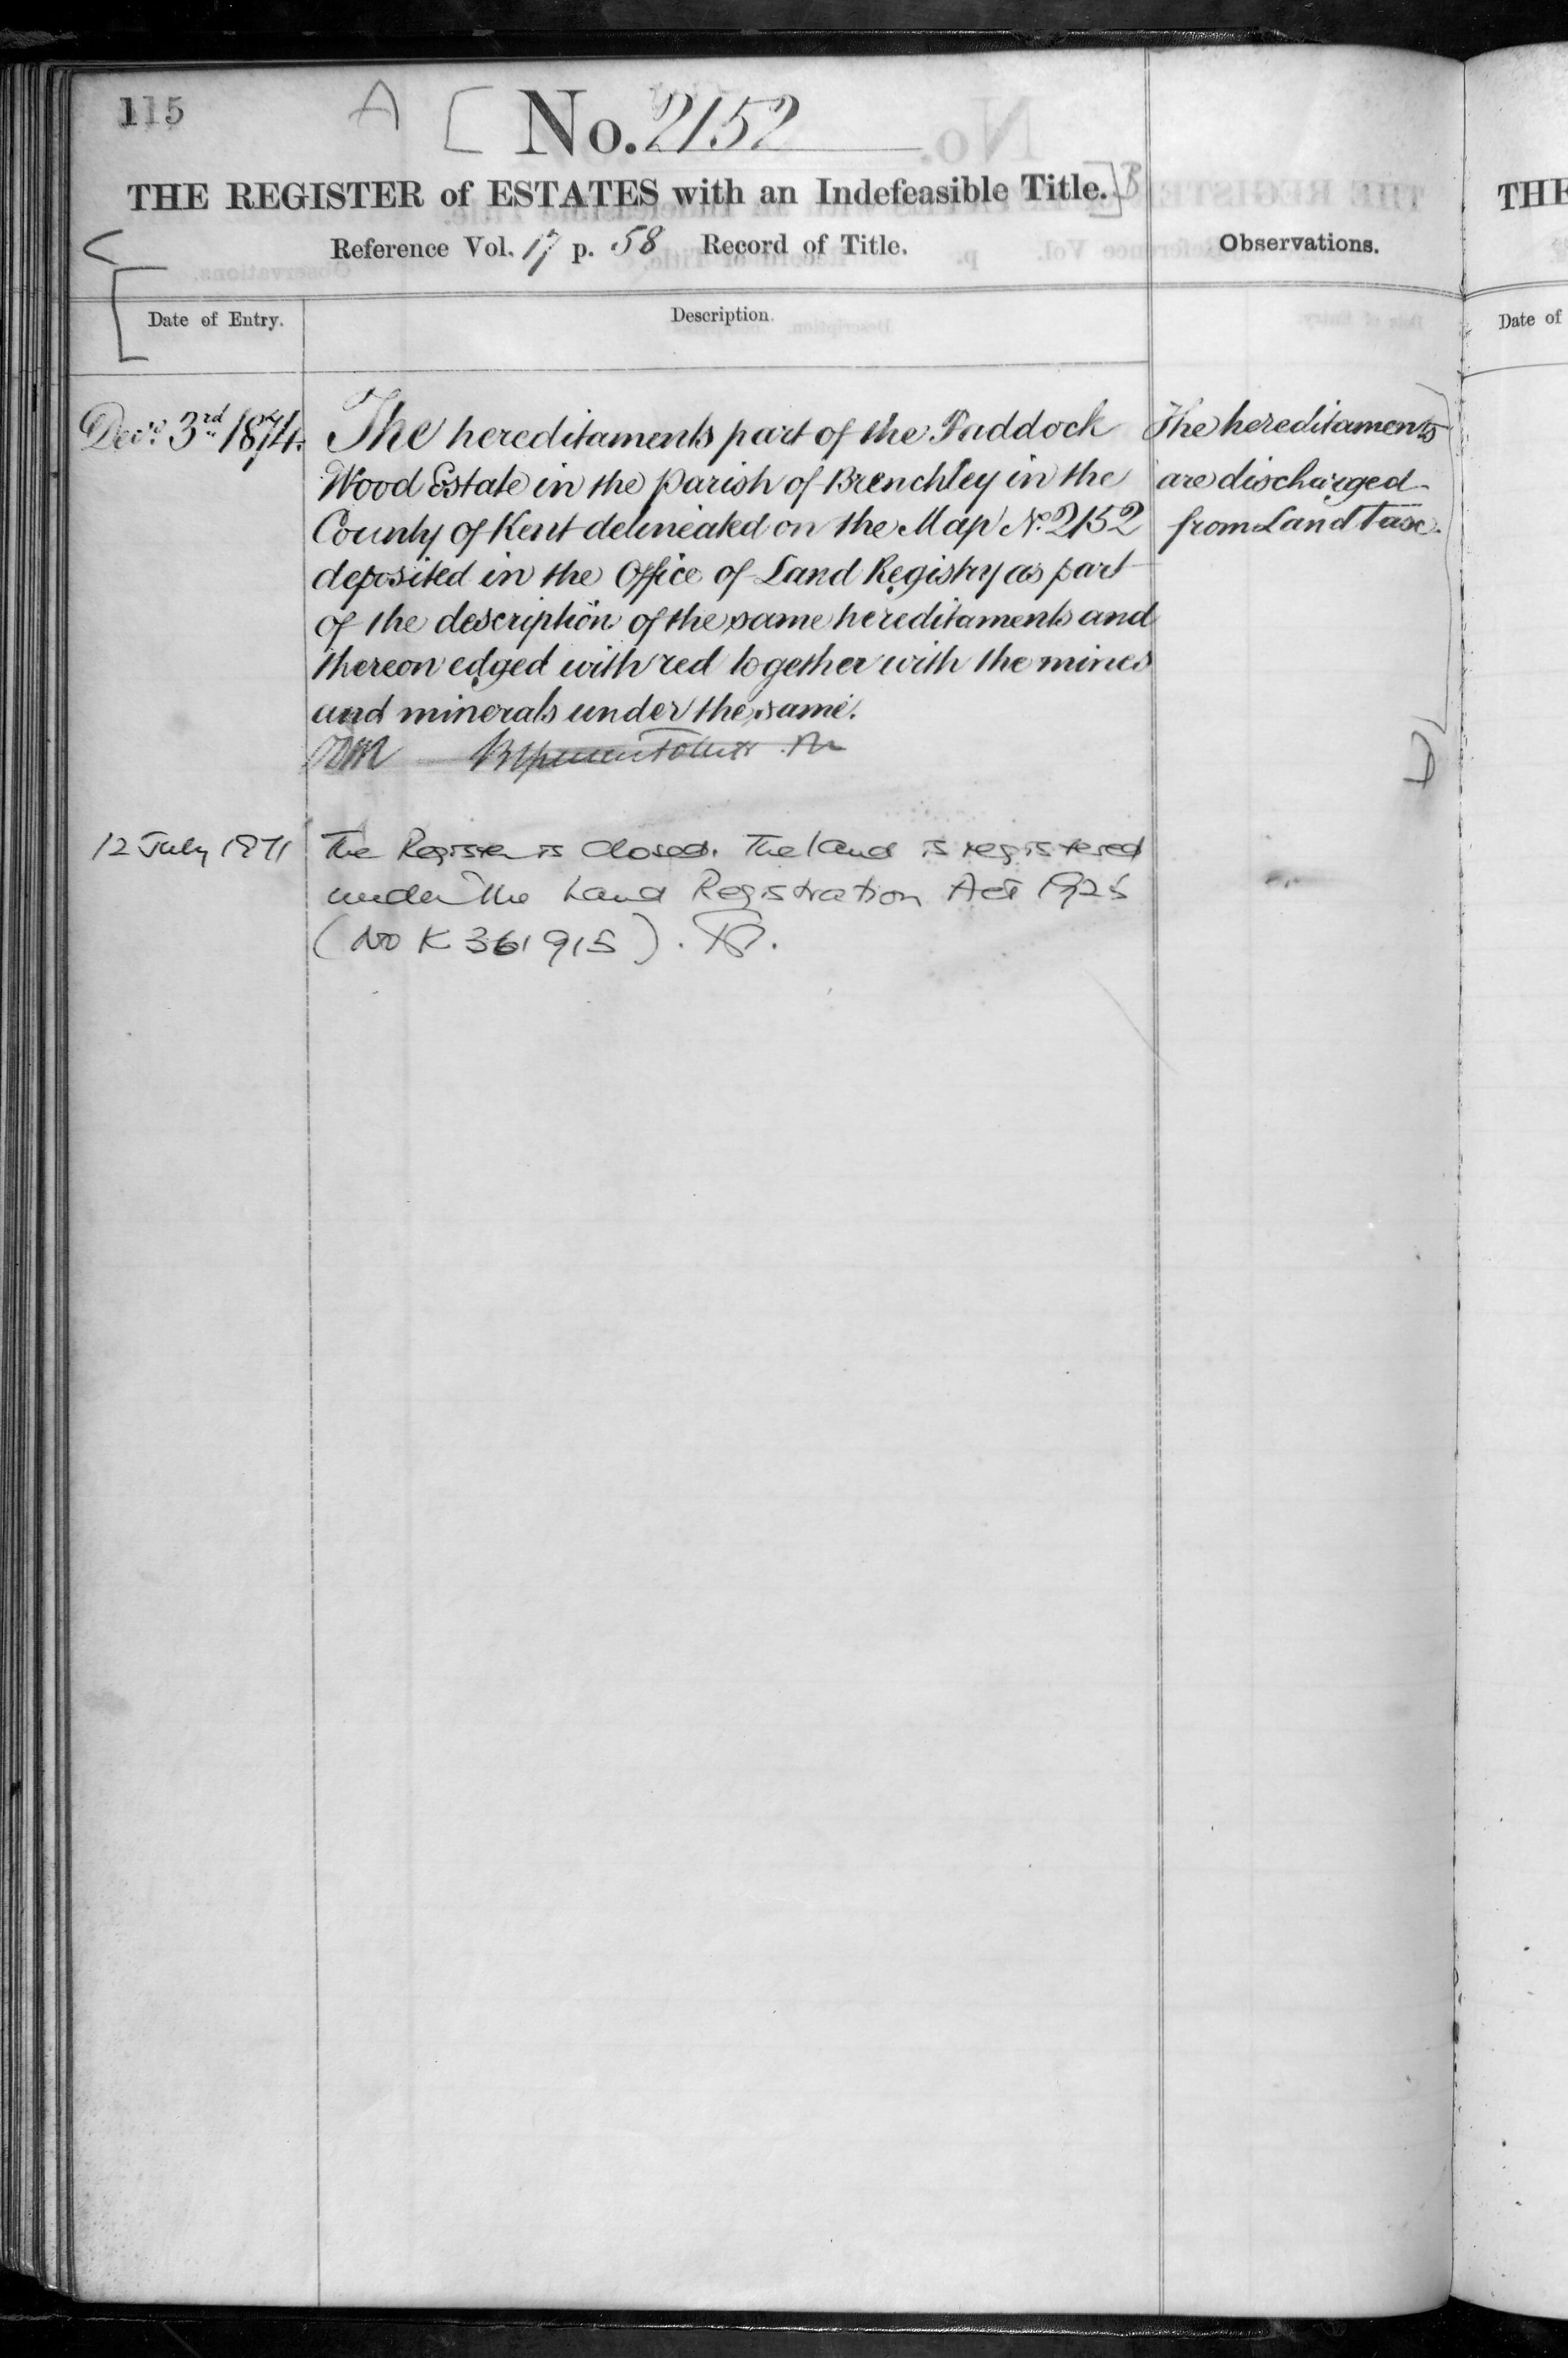 115
A
No. 2152
THE REGISTER of ESTATES with an Indefeasible Title.
B
Reference Vol. 17 p. 58 Record of Title.
Observations.
C
Date of Entry.
Description.
Decr. 3rd 1874.
The hereditaments part of the Paddock
Wood Estate in the parish of Brenchley in the
County of Kent delineated on the Map No. 2152
deposited in the Office of Land Registry as part
of the description of the same hereditaments and
thereon edged with red together with the mines
and minerals under the same.
The hereditaments
are discharged
from Land tax.
D
12 July 1971
The Register is closed. The land is registered
under the Land Registration Act 1925
(No K 361915).
THE
Date of